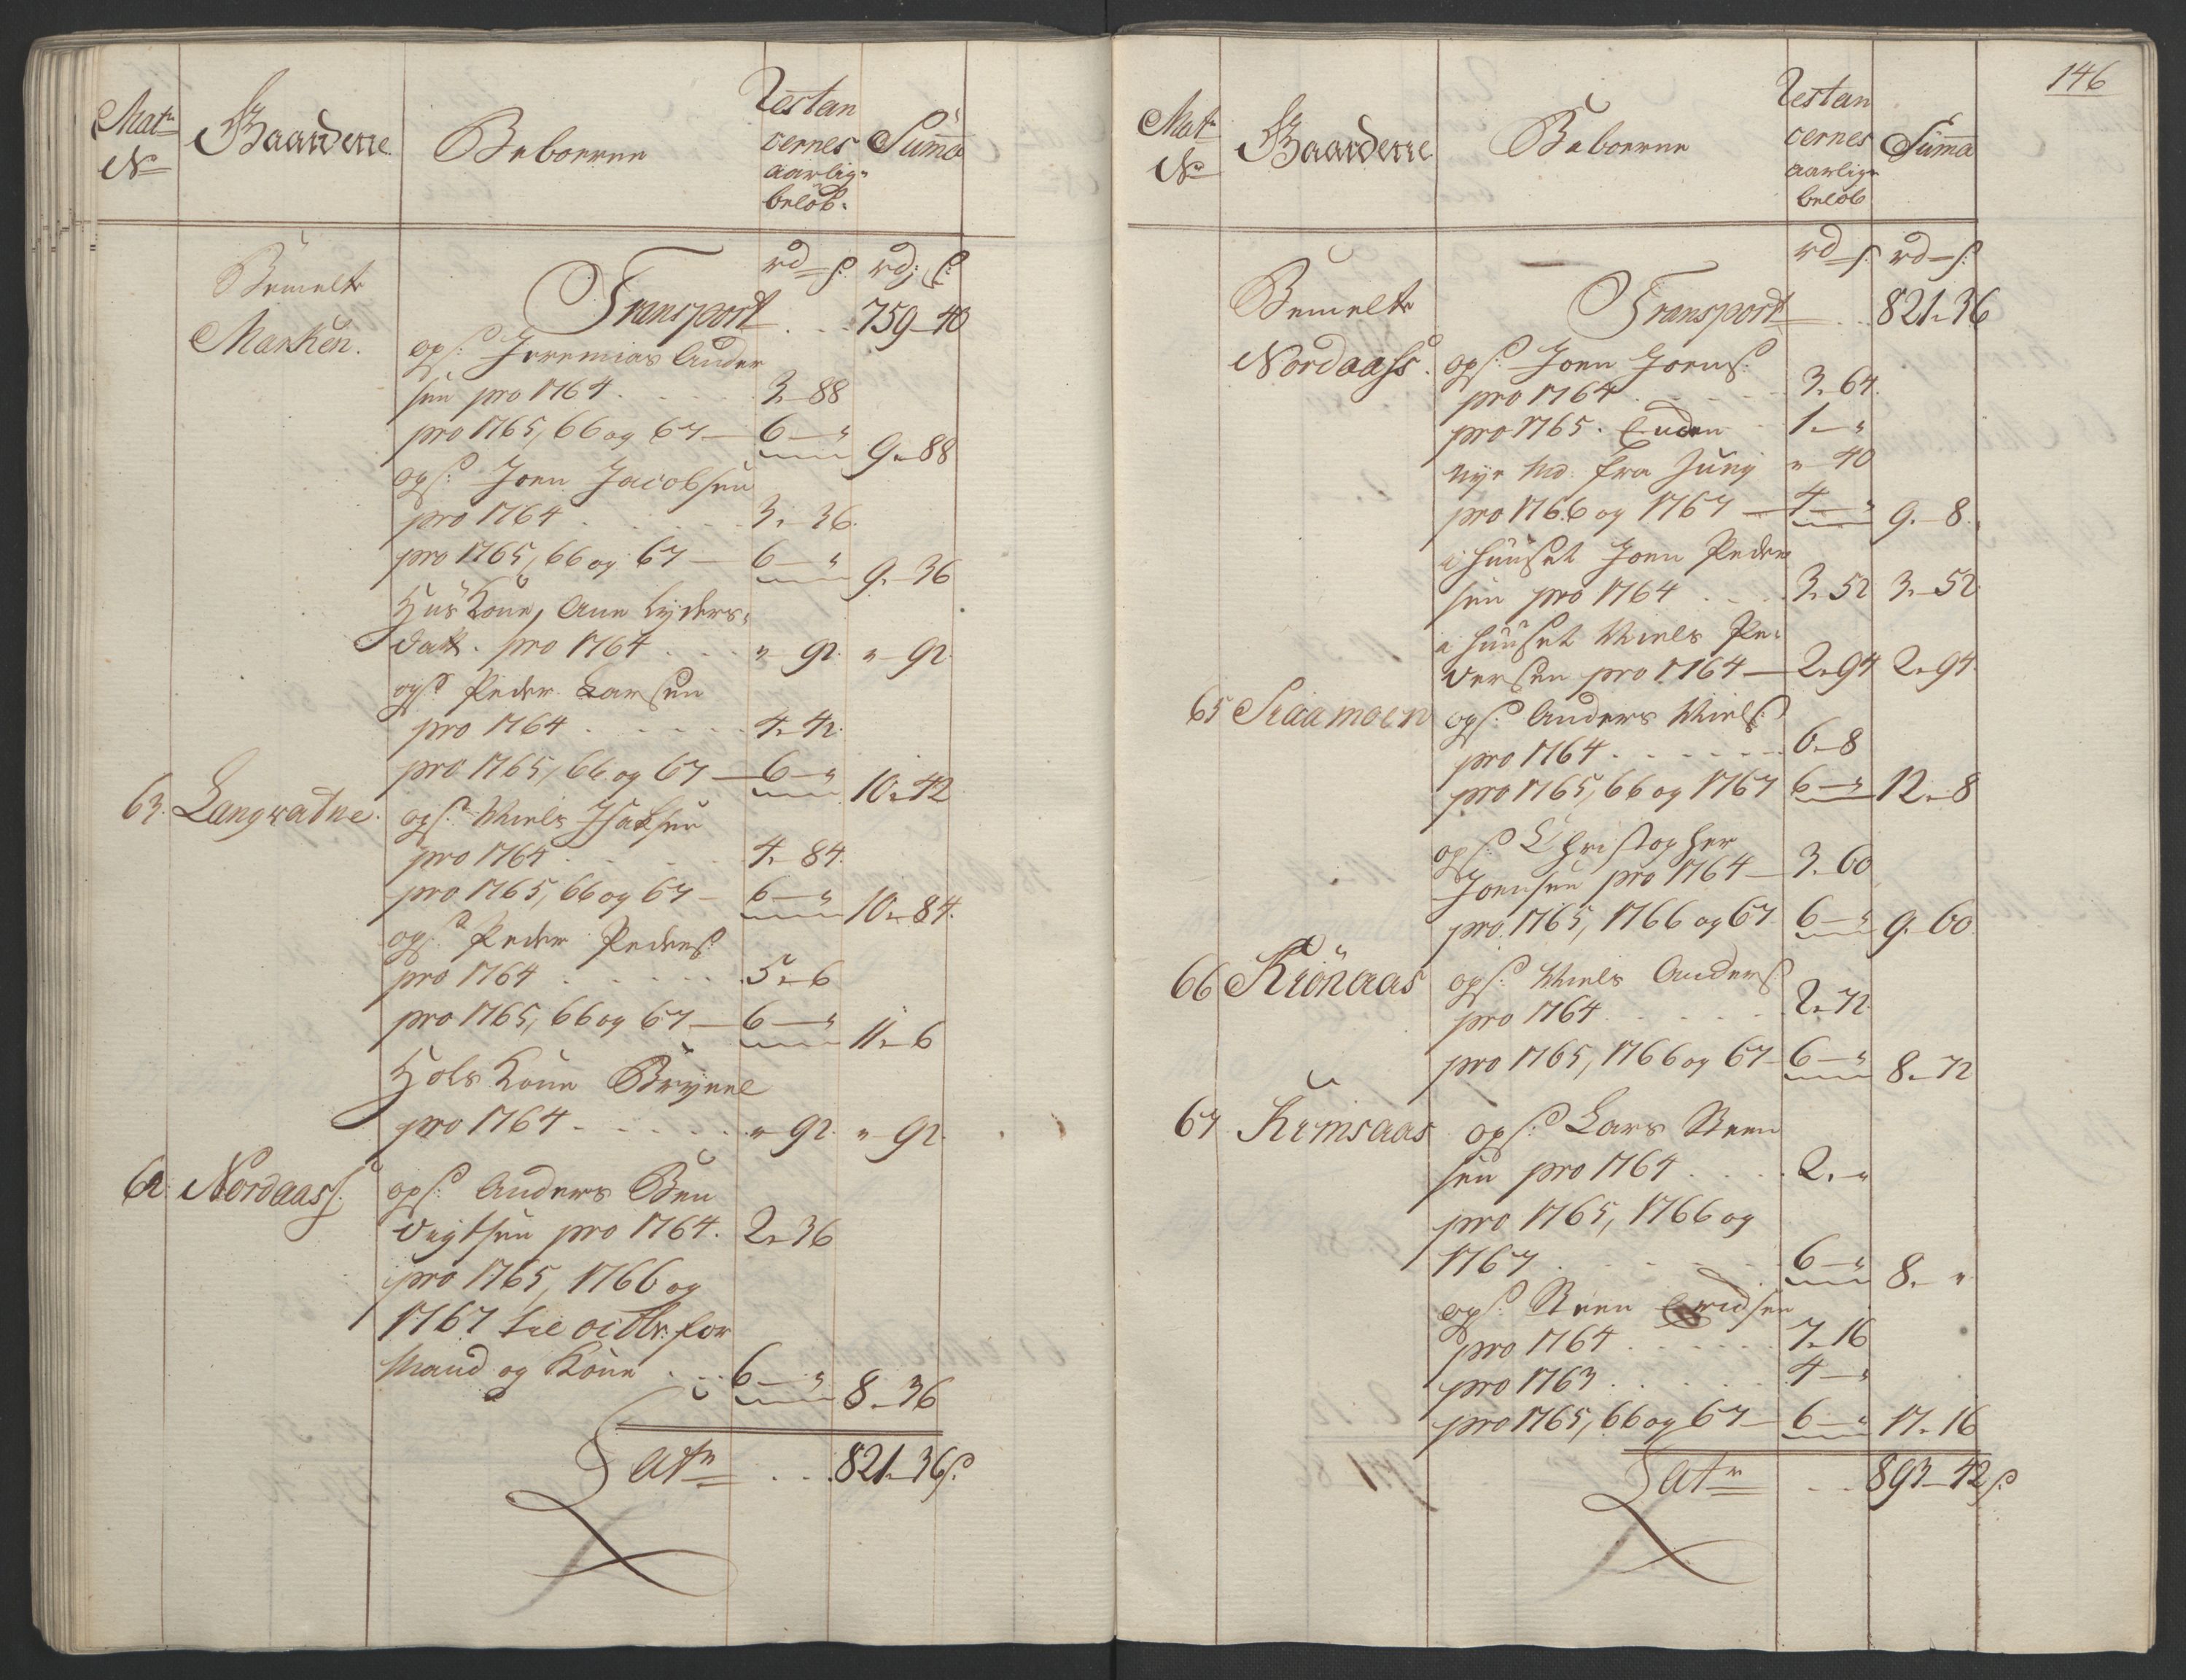 Mat:
No
Gaarderne
Beboerne
Restan
cernes
aarlig-
beløb.
Summa
rd ß: rd: ß:
Bemelte
Transport . . . 759 - 40
Marken.
ops: Jeremias Ander
sen pro 1764 . . . . 3 - 88
pro 1765, 66 og 67 — 6 — " 9 - 88
ops: Joen Jacobsen
pro 1764 . . . . . . 3 - 36.
pro 1765, 66 og 67 — 6 — " 9 - 36
Huus Kone, Ane
datt. pro 1764 . . . . " - 92 " - 92.
ops: Peder Larsen
pro 1764 . . . . . . 4 - 42.
pro 1765, 66 og 67 — 6 — " 10 - 42
63. Langvatne. ops: Niels Isaksen
pro 1764 . . . . . 4 - 84.
pro 1765, 66 og 67 — 6 — " 10 - 84.
ops: Peder Peders:
pro 1764 . . . . . . 5 - 6
pro 1765, 66 og 67 — 6 — " 11 - 6
Kone
pro 1764 . . . . . . " - 92. " - 92.
Nordaass. ops: Anders Ben
digtsen pro 1764. 2 - 36
pro 1765, 1766 og
1767 til octbr. for
Mand og Kone . . . 6 — " 8 - 36
Lats . . . 821 - 36 ß:
146
Mat:
No
Gaarderne
Beboerne
Restan
cernes
aarlig-
beløb
Summa
rd - ß: rd - ß:
Bemelte
Transport . . 821 - 36
Nordaass. ops: Joen Joens:
pro 1764 . . . . . . 3 - 64.
pro 1765. Enden 1 - "
nye Md. fra Junij " - 40
pro 1766 og 1767 — 4 — " 9 - 8.
i huuset Joen Peder
sen pro 1764 . . . 3 - 52 3 - 52
i huuset Niels Pe-
dersen pro 1764 — 2 - 94 2 - 94.
65 Staamoen ops: Anders Niels:
pro 1764 . . . . . . . 6 - 8
pro 1765, 66 og 1767 6 — " 12 - 8
ops: Christopher
Joensen pro 1764 — 3 - 60
pro 1765, 1766 og 67 6 — " 9 - 60
66 Krønaas ops: Niels Anders:
pro 1764 . . . . . 2 - 72.
pro 1765, 1766 og 67 — 6 — " 8 - 72
67 Remsaas ops: Lars Steen
sen pro 1764 . . . . 2 - "
pro 1765, 1766 og
1767 . . . . . . 6 — " 8 - "
ops: Steen
pro 1764 . . . . . . 7 - 16
pro 1763 . . . . . . 4 — "
pro 1765, 66 og 67 — 6 — " 17 - 16
Lats . . . 893 - 42 ß: